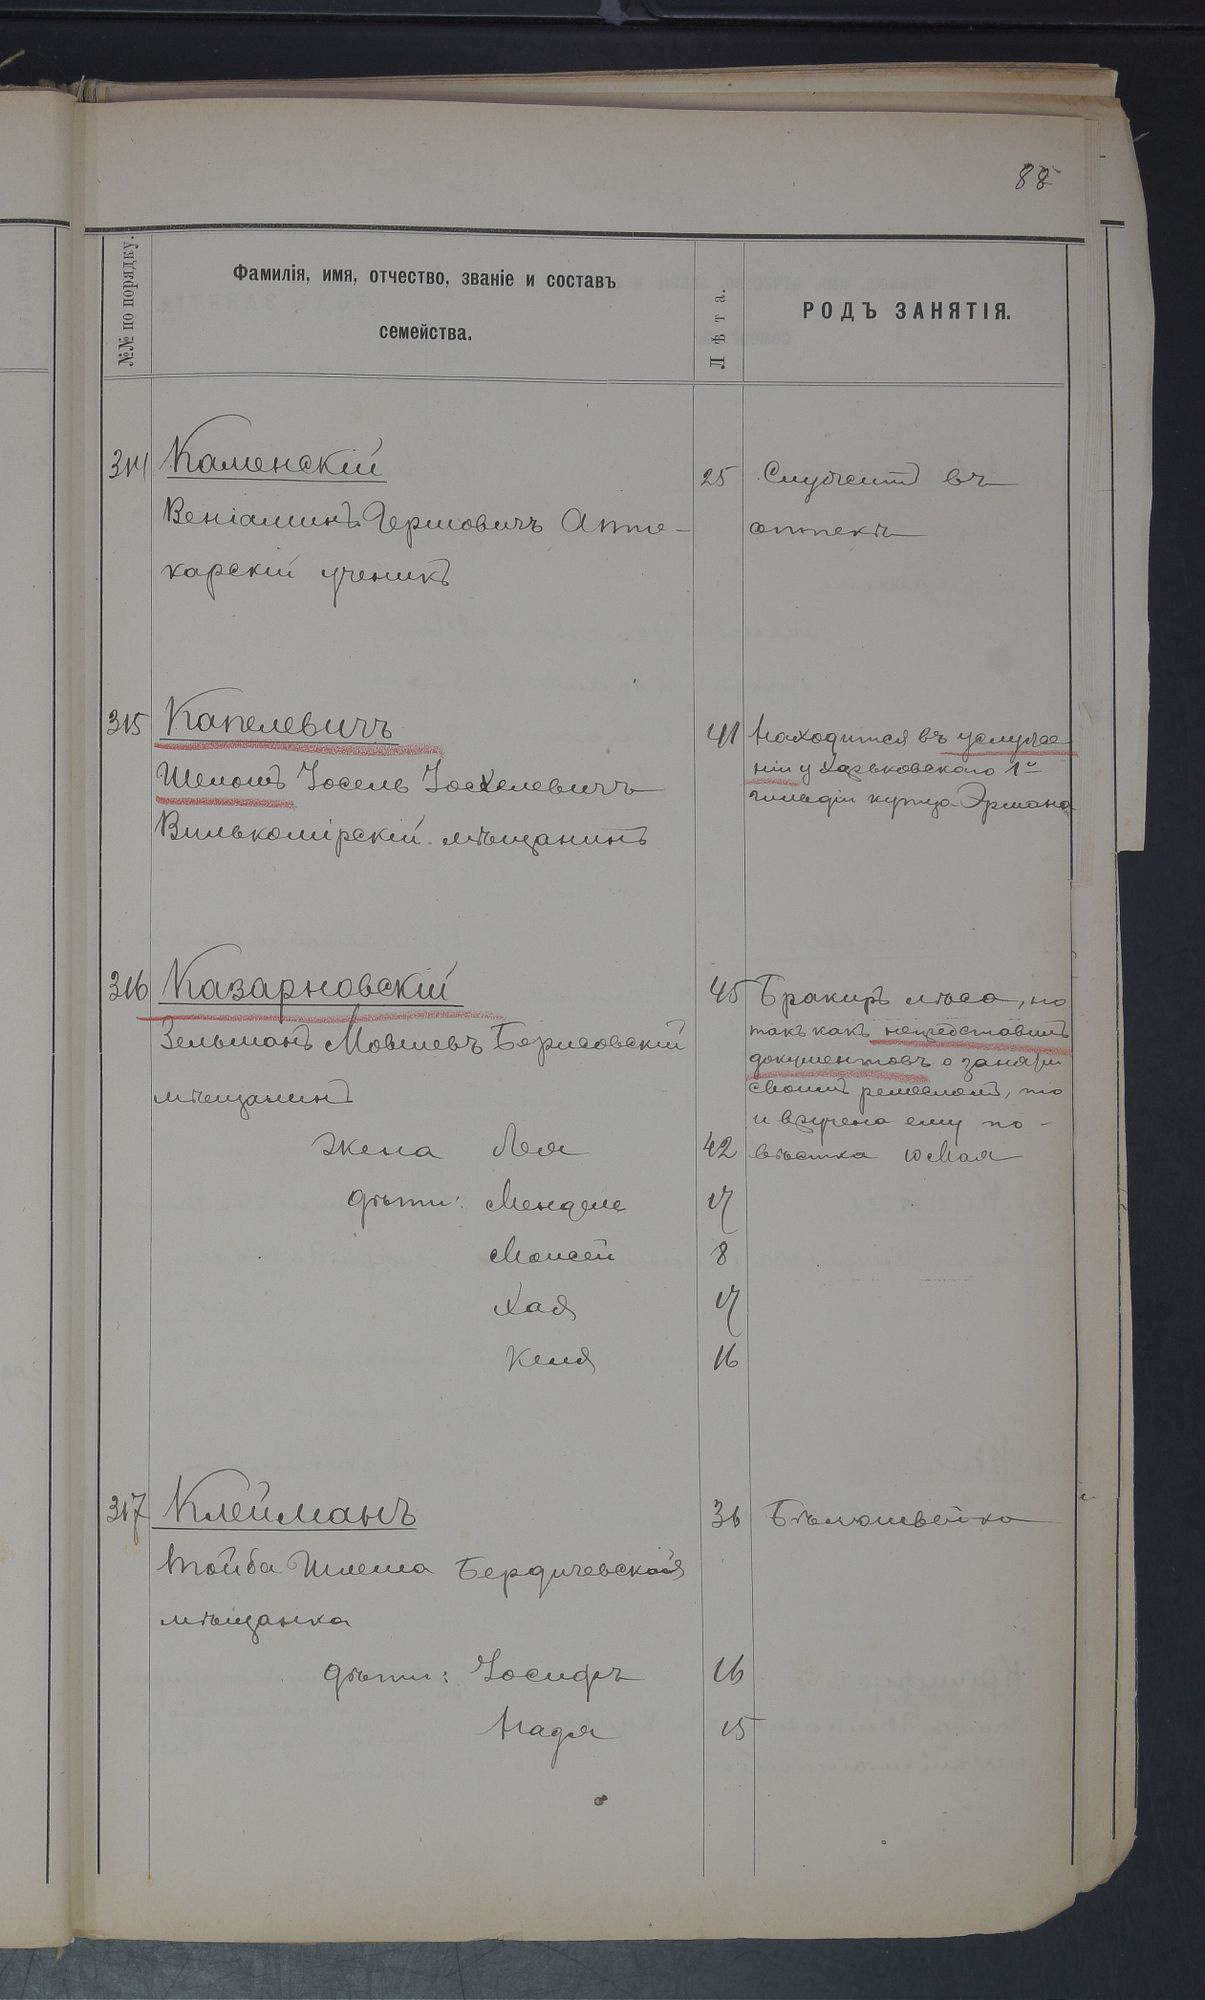 88
№№ по порядку.
Фамилія, имя, отчество, званіе и составъ
семейства.
Лѣта.
РОДЪ ЗАНЯТІЯ.
314 Каменскій 25 Служитъ въ
Веніаминъ Гершовичъ Апте- аптекѣ
карскій ученикъ
315 Капелевичъ 41 Находится въ услуже
Шеломъ Іосель Іосхелевичъ ніи у Харьковскаго 1й
гильдіи купца Эрмана
Вилькомірскій мѣщанинъ
316 Казарновскій 45 Бракиръ мяса, но
такъ какъ непредставилъ
Зельманъ Мовшевъ Борисовскій
документовъ о занятіи
мѣщанинъ своимъ ремесломъ, то
и вручена ему по-
жена Лея 42 вѣстка 10 Мая
дѣти: Мендель 17
Моисей 8
Хая 17
Кеня 16
317 Клейманъ 36 Бѣлошвейка
Тойба Шлема Бердичевская
мѣщанка
дѣти: Іосифъ 16
Надя 15